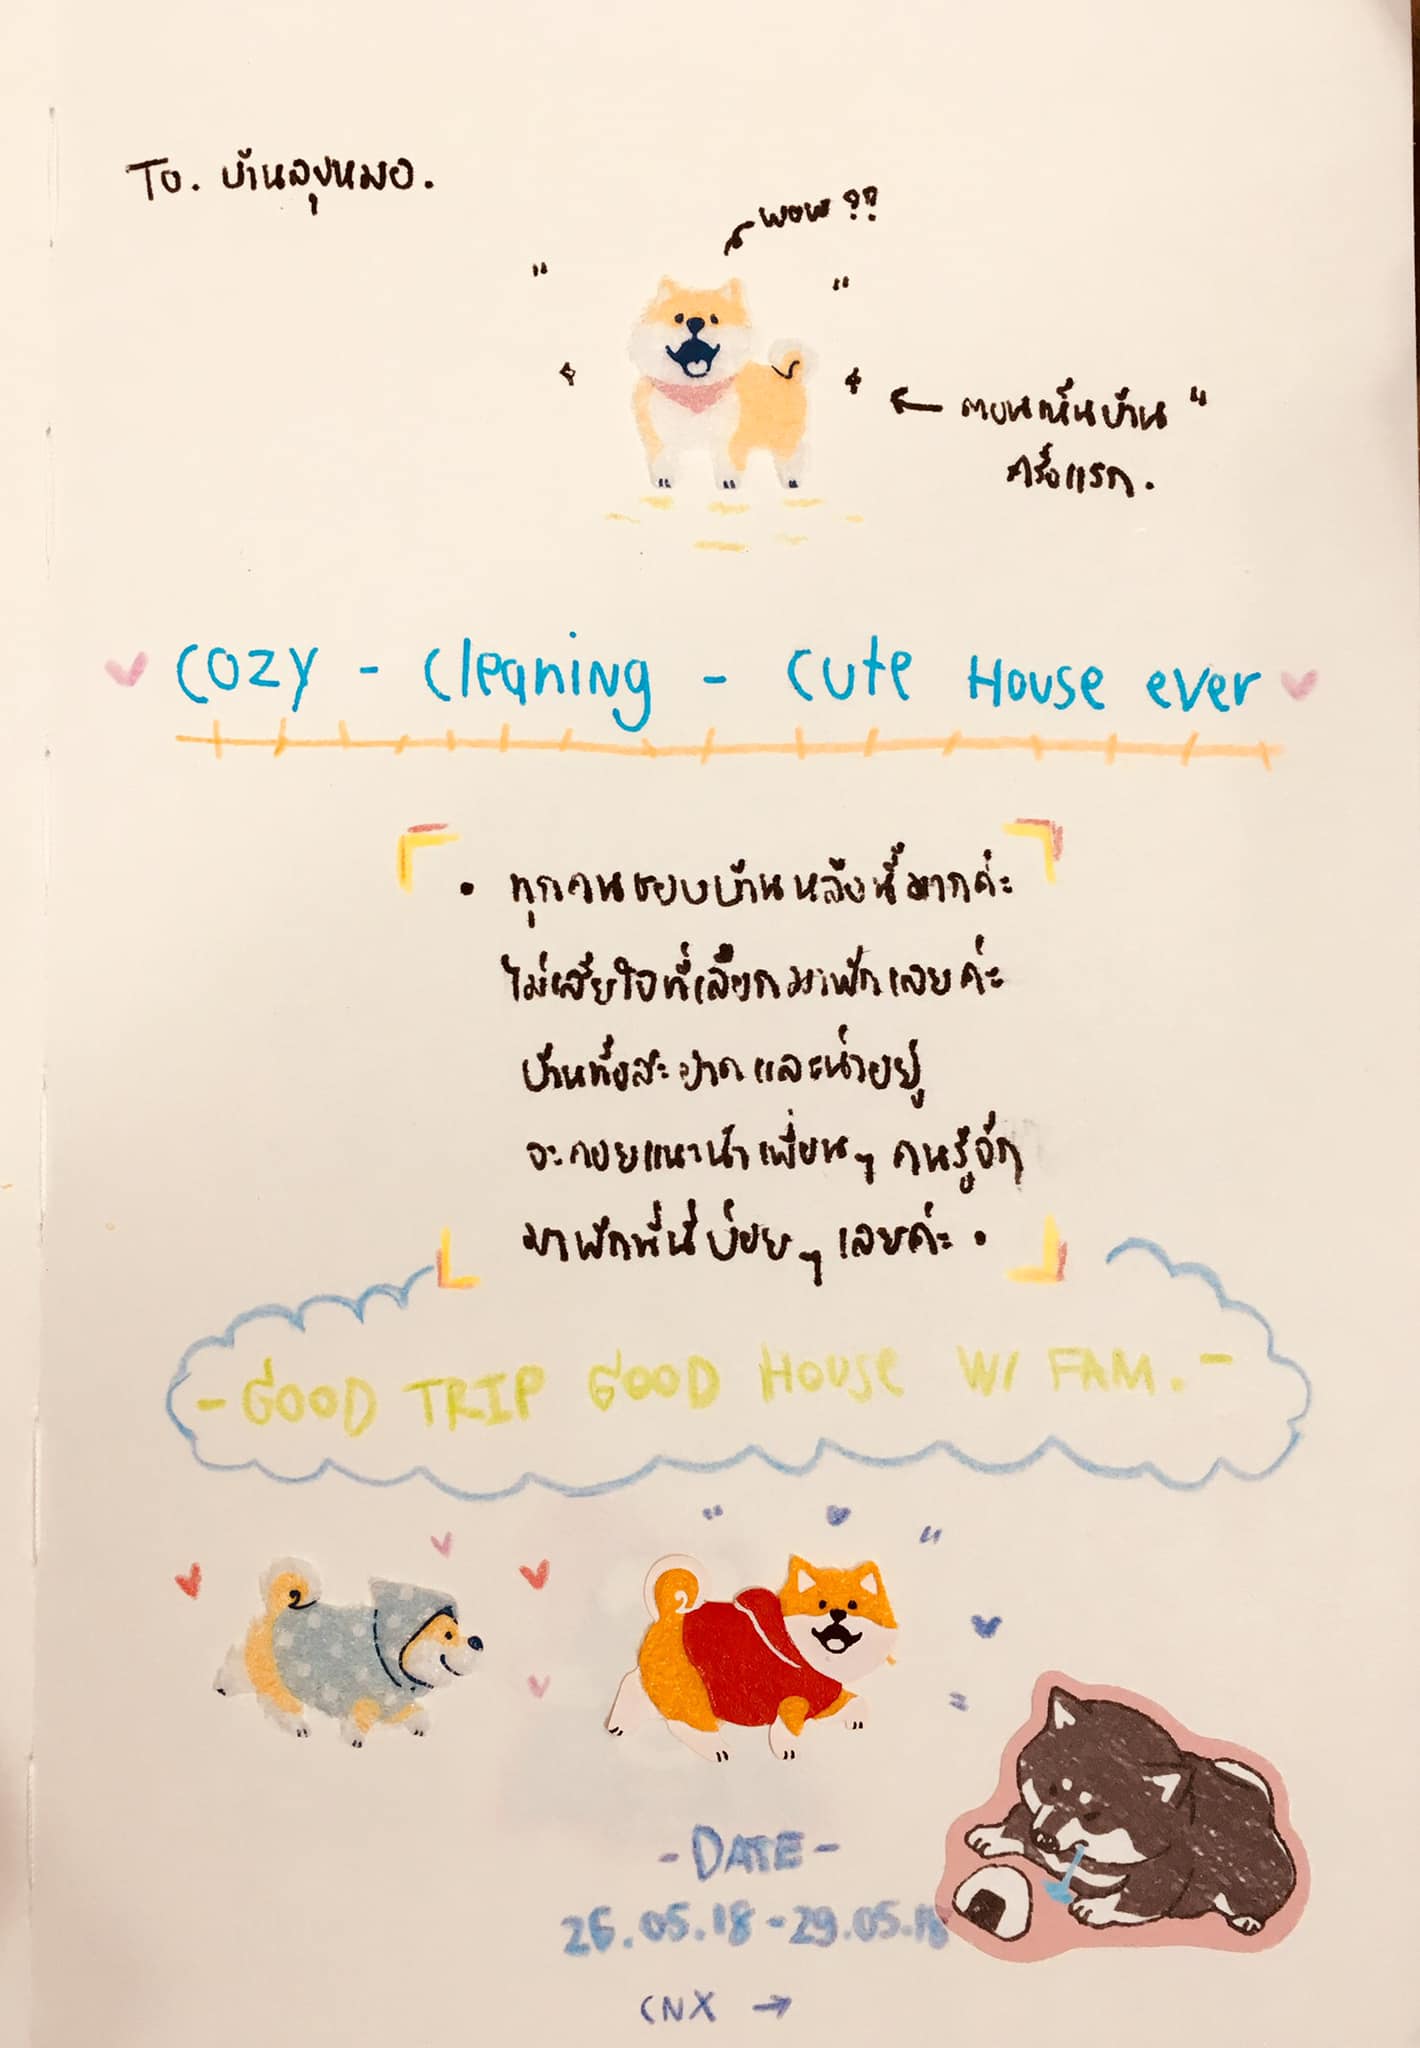 To. บ้านลุงหมอ.
wow ??
← ตอนเห็นบ้าน "
ครั้งแรก.
COZY - Cleaning - Cute House ever
• ทุกคนชอบบ้านหลังนี้มากค่ะ
ไม่เสียใจที่เลือกมาพักเลยค่ะ
บ้านทั้งสะอาดและน่าอยู่
จะคอยแนะนำเพื่อนๆ คนรู้จัก
มาพักที่นี่บ่อยๆ เลยค่ะ •
- GOOD TRIP GOOD House W/ FAM. -
- DATE -
26.05.18 - 29.05.18
CNX →